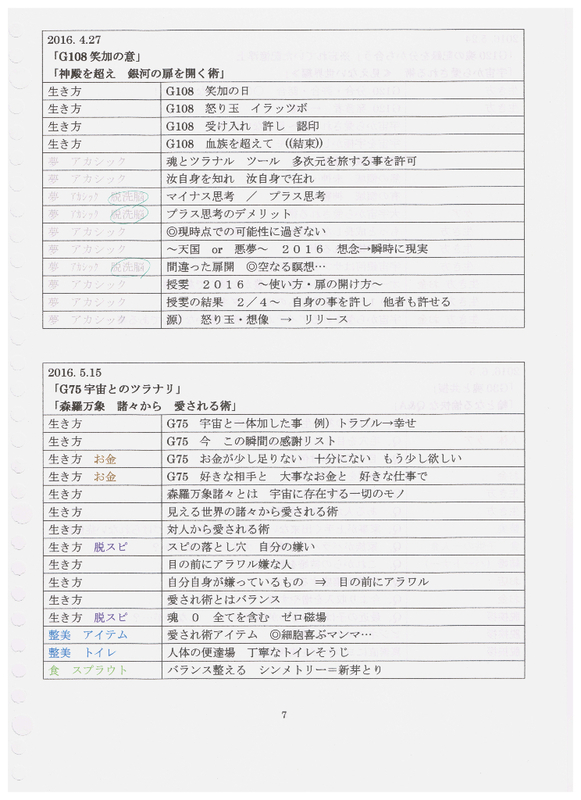 2016. 4.27
「G108 笑加の意」
「神殿を超え　銀河の扉を開く術」
生き方　G108　笑加の日
生き方　G108　怒り玉　イラッツボ
生き方　G108　受け入れ　許し　認印
生き方　G108　血族を超えて　((結束))
夢　アカシック　魂とツラナル　ツール　多次元を旅する事を許可
夢　アカシック　汝自身を知れ　汝自身で在れ
夢　アカシック　脱洗脳　マイナス思考　／　プラス思考
夢　アカシック　脱洗脳　プラス思考のデメリット
夢　アカシック　◎現時点での可能性に過ぎない
夢　アカシック　～天国　or　悪夢～　２０１６　想念→瞬時に現実
夢　アカシック　脱洗脳　間違った扉開　◎空なる瞑想…
夢　アカシック　授雯　２０１６　～使い方・扉の開け方～
夢　アカシック　授雯の結果　２／４～　自身の事を許し　他者も許せる
夢　アカシック　源）　怒り玉・想像　→　リリース
2016. 5.15
「G75 宇宙とのツラナリ」
「森羅万象　諸々から　愛される術」
生き方　G75　宇宙と一体加した事　例）トラブル→幸せ
生き方　G75　今　この瞬間の感謝リスト
生き方　お金　G75　お金が少し足りない　十分にない　もう少し欲しい
生き方　お金　G75　好きな相手と　大事なお金と　好きな仕事で
生き方　森羅万象諸々とは　宇宙に存在する一切のモノ
生き方　見える世界の諸々から愛される術
生き方　対人から愛される術
生き方　脱スピ　スピの落とし穴　自分の嫌い
生き方　目の前にアラワル嫌な人
生き方　自分自身が嫌っているもの　⇒　目の前にアラワル
生き方　愛され術とはバランス
生き方　脱スピ　魂　０　全てを含む　ゼロ磁場
整美　アイテム　愛され術アイテム　◎細胞喜ぶマンマ…
整美　トイレ　人体の便達場　丁寧なトイレそうじ
食　スプラウト　バランス整える　シンメトリー＝新芽とり
7